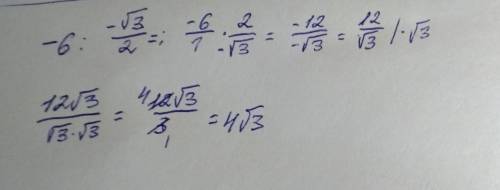 -6 : \frac{-\sqrt{3}}{2} =; \frac{-6}{1} \cdot \frac{2}{-\sqrt{3}} = \frac{-12}{-\sqrt{3}} = \frac{12}{\sqrt{3}} / \cdot \sqrt{3}
\frac{12\sqrt{3}}{\sqrt{3} \cdot \sqrt{3}} = \frac{^4 \cancel{12}\sqrt{3}}{\cancel{3}_1} = 4\sqrt{3}